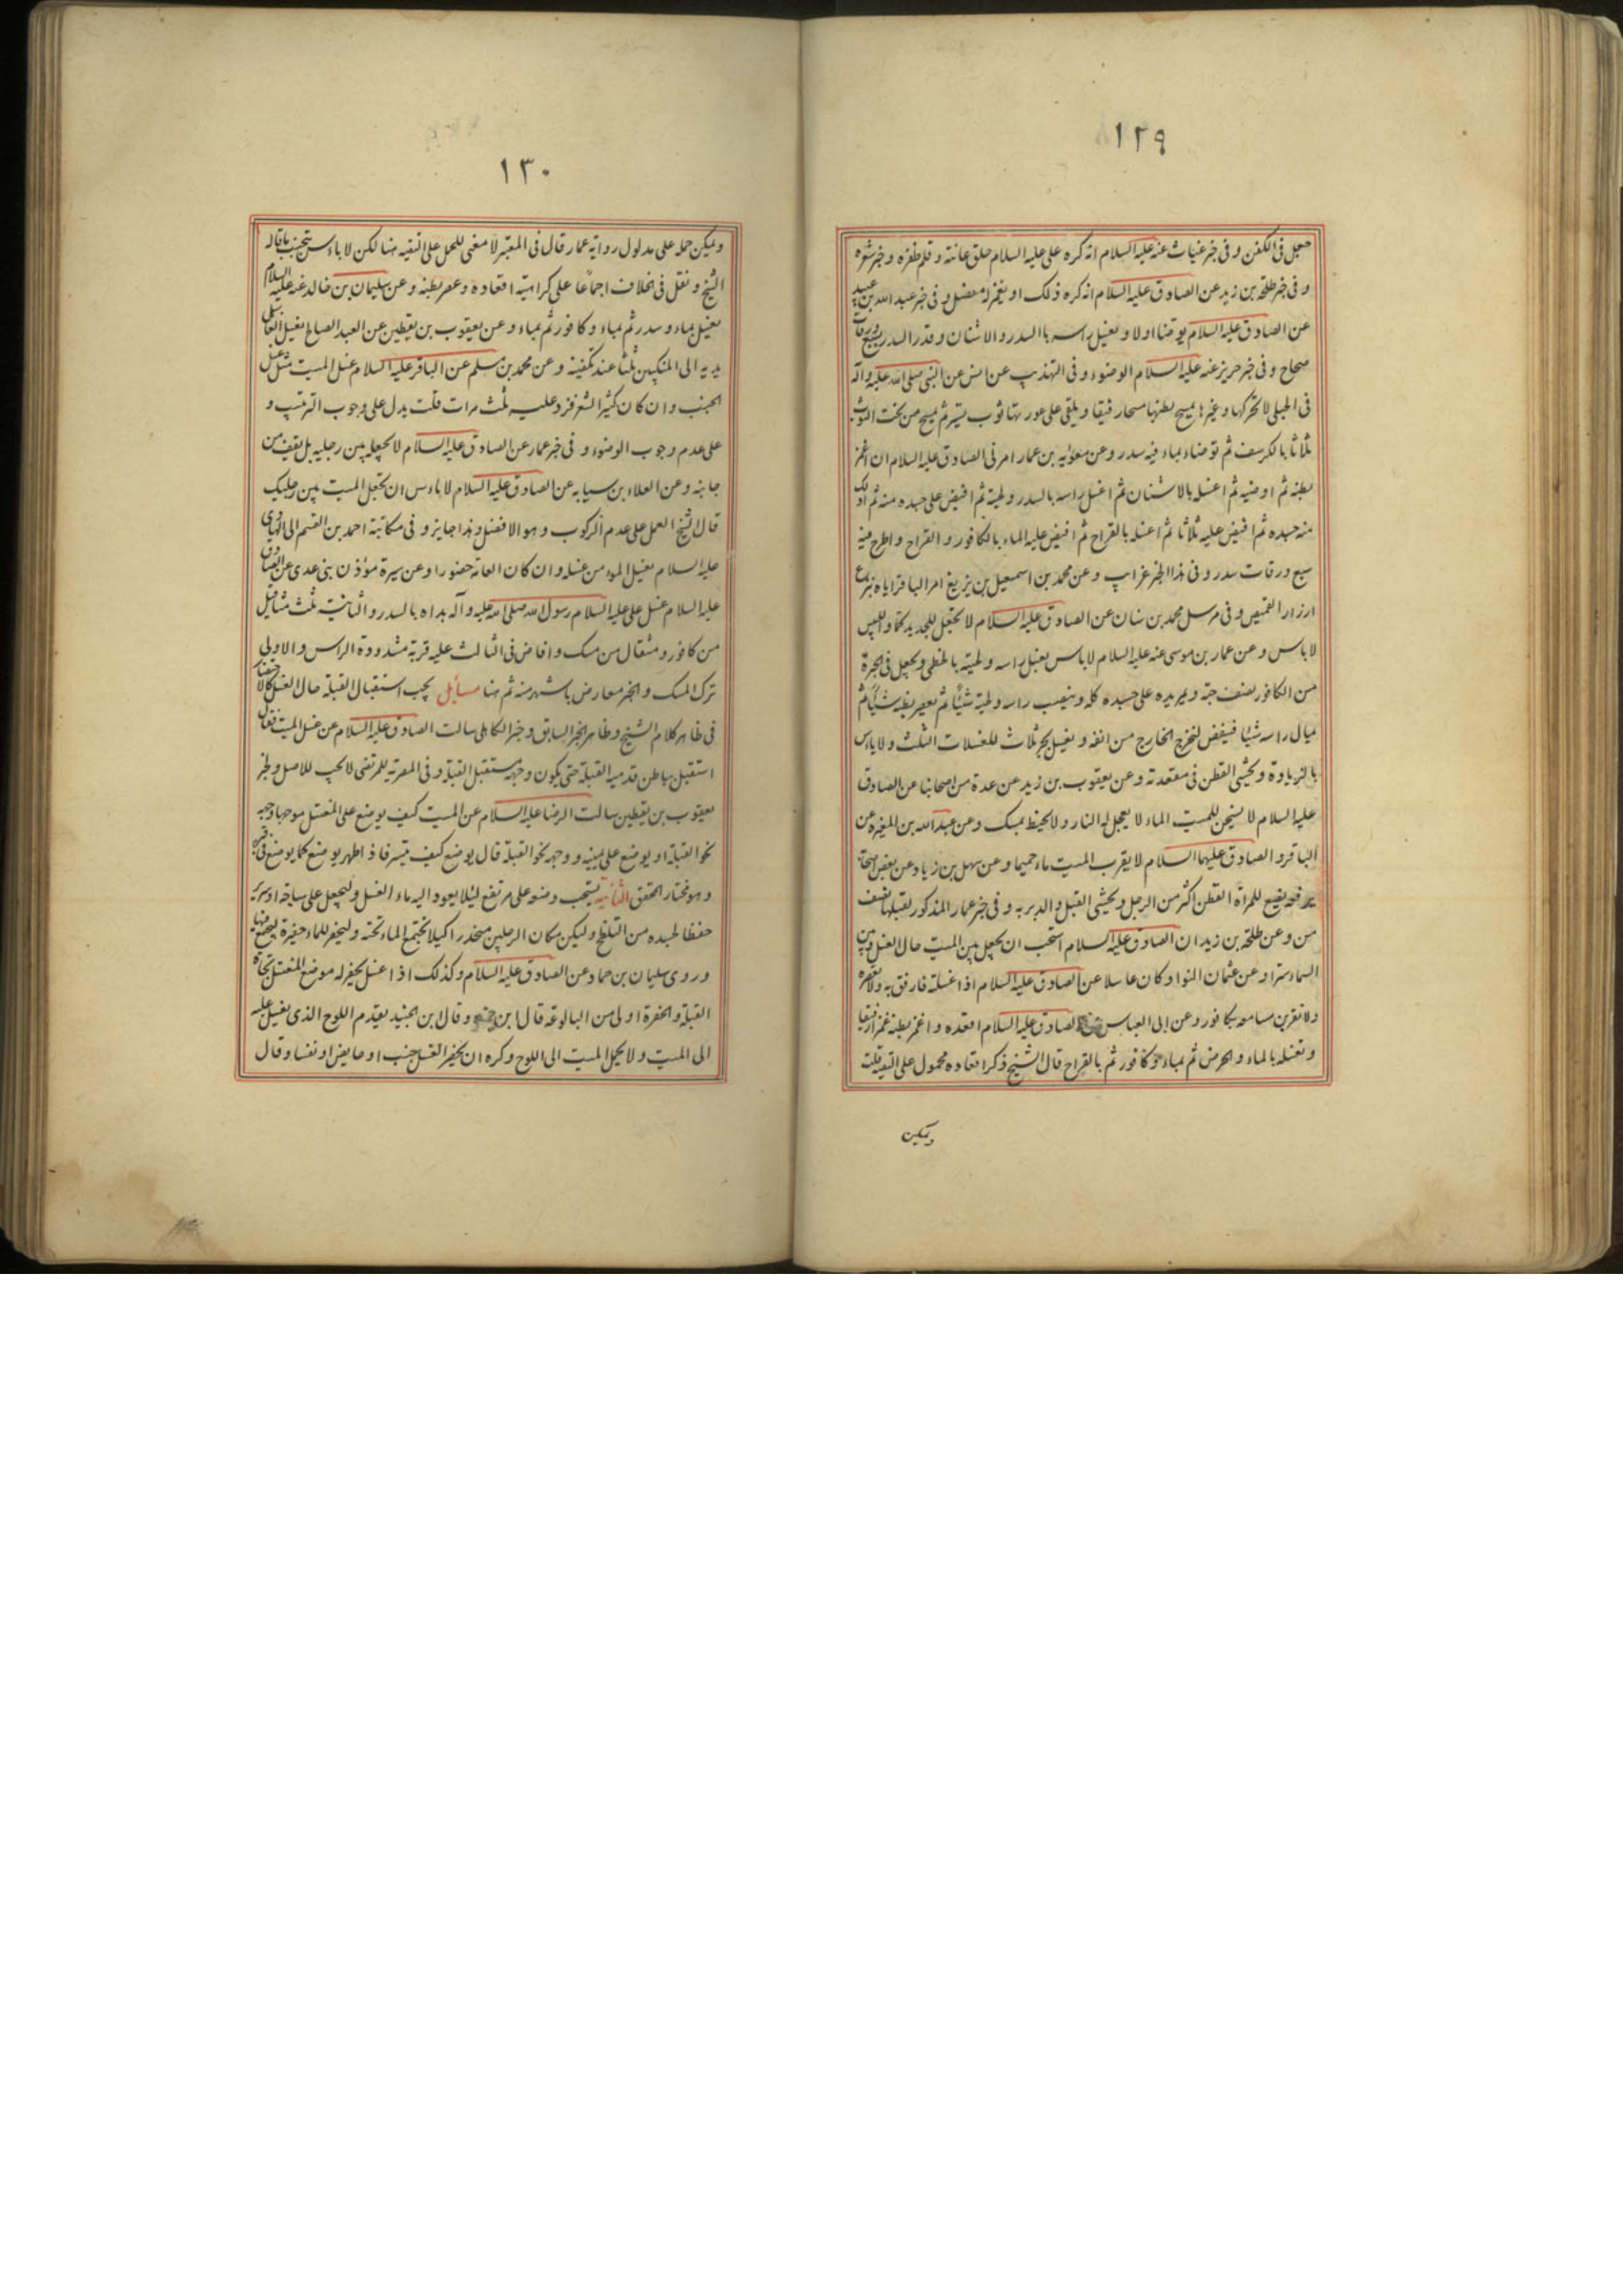 ١٢٩
جعل فى الكفن و فى خبر غياث عنه عليه السلام انه كره على عليه السلام حلق عانته و قلم ظفره و جز شعره
و فى خبر طلحة بن زيد عن الصادق عليه السلام انه كره ذلك او يغمز له مفصل و فى خبر عبد الله بن عبيد
عن الصادق عليه السلام يوضأ اولا و يغسل راسه بالسدر و الاشنان و قدر السدر بسبع ورقات
صحاح و فى خبر حريز عنه عليه السلام الوضوء و فى التهذيب عن انس عن النبى صلى الله عليه و آله
فى الحبلى لا تحركها و غيرها يمسح بطنها مسحا رفيقا و يلقى على عورتها ثوب يستر ثم يمسح من تحت الثوب
ثلاثا بالكرسف ثم توضاء بماء فيه سدر و عن معوية بن عمار امرنى الصادق عليه السلام ان اغمز
بطنه ثم اوضيه ثم اغسله بالاشنان ثم اغسل راسه بالسدر و لحيته ثم افيض على جسده منه ثم ادلك
منه جسده ثم افيض عليه ثلاثا ثم اغسله بالقراح ثم افيض عليه الماء بالكافور و القراح و اطرح فيه
سبع ورقات سدر و فى هذا الخبر غراب و عن محمد بن اسمعيل بن بزيع امر الباقر اياه بنزع
ازرار القميص و فى مرسل محمد بن سنان عن الصادق عليه السلام لا تجعل للجديد كما و اللبيس
لا باس و عن عمار بن موسى عنه عليه السلام لا باس بغسل راسه و لحيته بالخطمى و يجعل فى الجرة
من الكافور نصف حبة و يمر يده على جسده كله و ينصب راسه و لحيته شيئا ثم يعصر بطنه شيئا ثم
يمال راسه شيئا فينفض لتخرج الخارج من انفه و يغسل بجر ثلاث للغسلات الثلث و لا باس
بالزيادة و يحشى القطن فى مقعدته و عن يعقوب بن زيد عن عدة من اصحابنا عن الصادق
عليه السلام لا يسخن للميت الماء لا يعجل له النار و لا يحنط بمسك و عن عبد الله بن المغيرة عن
الباقر و الصادق عليهما السلام لا يقرب الميت ماء حميما و عن سهل بن زياد عن بعض اصحابنا
رفعه يضع للمرأة القطن اكثر من الرجل و يحشى القبل و الدبر به و فى خبر عمار المذكور لقبلها نصف
من و عن طلحة بن زيد ان الصادق عليه السلام استحب ان يجعل بين الميت حال الغسل و بين
السماء سترا و عن عثمان النوا و كان غاسلا عن الصادق عليه السلام اذا غسلته فارفق به و لا تعصره
و لا تقربن مسامعه بكافور و عن ابى العباس عن الصادق عليه السلام اقعده و اغمز بطنه غمزا رفيقا
و تغسله بالماء و الحرض ثم بماء و كافور ثم بالقراح قال الشيخ ذكر اقعاده محمول على التقية قلت
ويمكن
١٣٠
ويمكن حمله على مدلول رواية عمار قال فى المعتبر لا معنى للحمل على التقيه هنا لكن لا باس بتجنب ما قاله
الشيخ و نقل فى الخلاف اجماعا على كراهية اقعاده و عصر بطنه و عن سليمان بن خالد عنه عليه السلام
يغسل بماء و سدر ثم بماء و كافور ثم بماء و عن يعقوب بن يقطين عن العبد الصالح يغسل الغاسل
يديه الى المنكبين ثلثا عند تكفينه و عن محمد بن مسلم عن الباقر عليه السلام غسل الميت مثل غسل
الجنب و ان كان كثير الشعر فزد عليه ثلث مرات قلت يدل على وجوب الترتيب و
على عدم وجوب الوضوء و فى خبر عمار عن الصادق عليه السلام لا يجعله بين رجليه بل يقف من
جانبه و عن العلاء بن سيابه عن الصادق عليه السلام لا باس ان تجعل الميت بين رجليك
قال الشيخ العمل على عدم الركوب و هو الافضل و هذا جايز و فى مكاتبة احمد بن القسم الى الهادى
عليه السلام يغسل المؤمن غسله و ان كان العامة حضورا و عن سيرة مؤذن بنى عدى عن الصادق
عليه السلام غسل على عليه السلام رسول الله صلى الله عليه و آله بداه بالسدر و الثانية ثلث مثاقيل
من كافور و مثقال من مسك و افاض فى الثالث عليه قربة مشدودة الراس و الاولى
ترك المسك و الخبر معارض باشهر منه ثم هنا مسائل يجب استقبال القبلة حال الغسل كالاحتضار
فى ظاهر كلام الشيخ و ظاهر الخبر السابق و خبر الكاهلى سالت الصادق عليه السلام عن غسل الميت فقال
استقبل بباطن قدميه القبلة حتى يكون وجهه مستقبل القبلة و فى المصرية للمرتضى لا تجب للاصل و لخبر
يعقوب بن يقطين سالت الرضا عليه السلام عن الميت كيف يوضع على المغتسل موجها وجهه
نحو القبلة او يوضع على يمينه و وجهه نحو القبلة قال يوضع كيف تيسر فاذا طهر يوضع كما يوضع فى قبره
و هو مختار المحقق الثانية يستحب وضعه على مرتفع ليلا يعود اليه ماء الغسل و ليجعل على ساجة او سرير
حفظا لجسده من التلطخ و ليكن مكان الرجلين منحدرا كيلا يجتمع الماء تحته و ليحفر للماء حفيرة ليجتمع فيها
و روى سليمان بن حماد عن الصادق عليه السلام و كذلك اذا غسل يحفر له موضع المغتسل تجاه
القبلة و الحفرة اولى من البالوعة قال ابن و قال ابن الجنيد يقدم اللوح الذى يغسل عليه
الى الميت و لا يحمل الميت الى اللوح و كره ان يحضر الغسل جنب او حايض او نفسا و قال